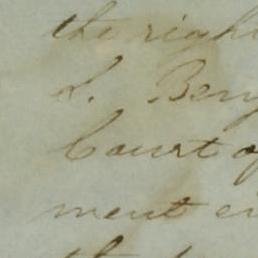 the right
L. Ben
Court o
ment e
the